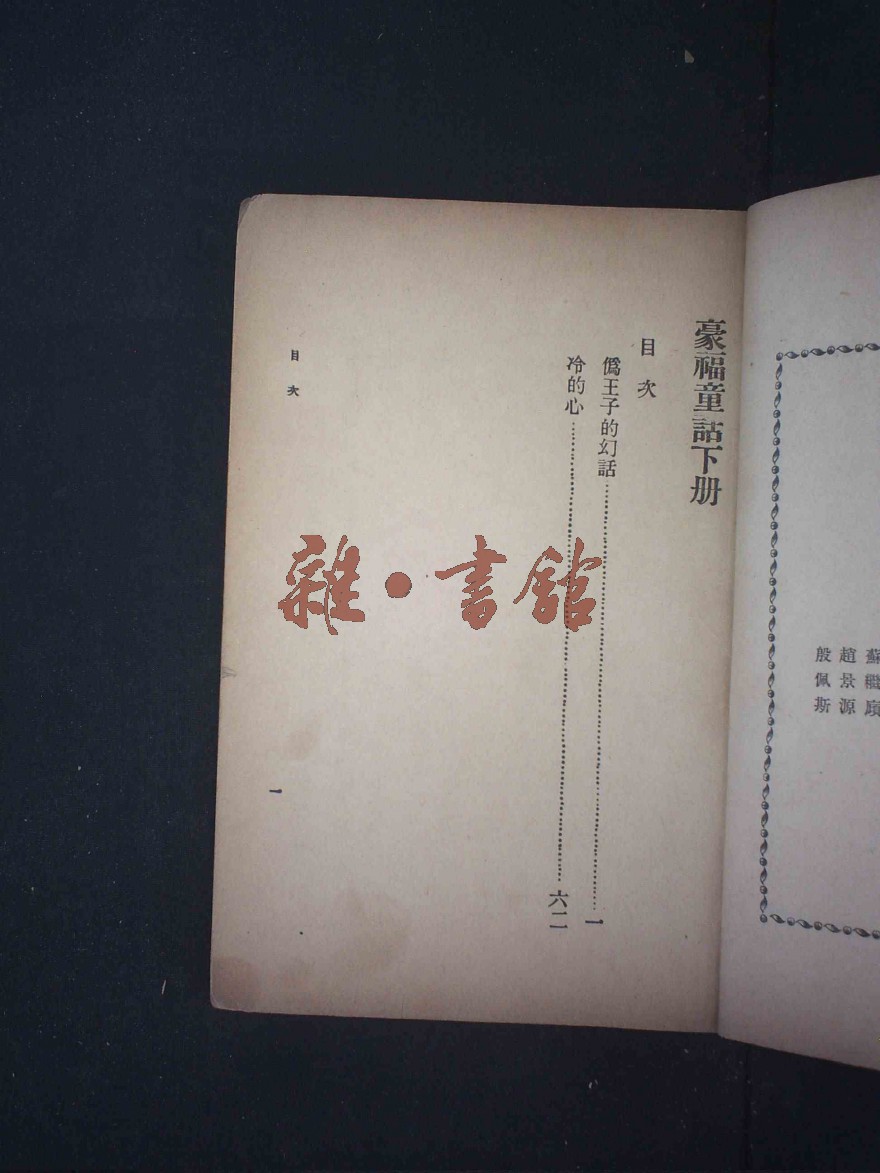 蘇繼廎
趙景源
殷佩斯
豪福童話下册
目次
僞王子的幻話……一
冷的心……六二
目次
一
雜·書館